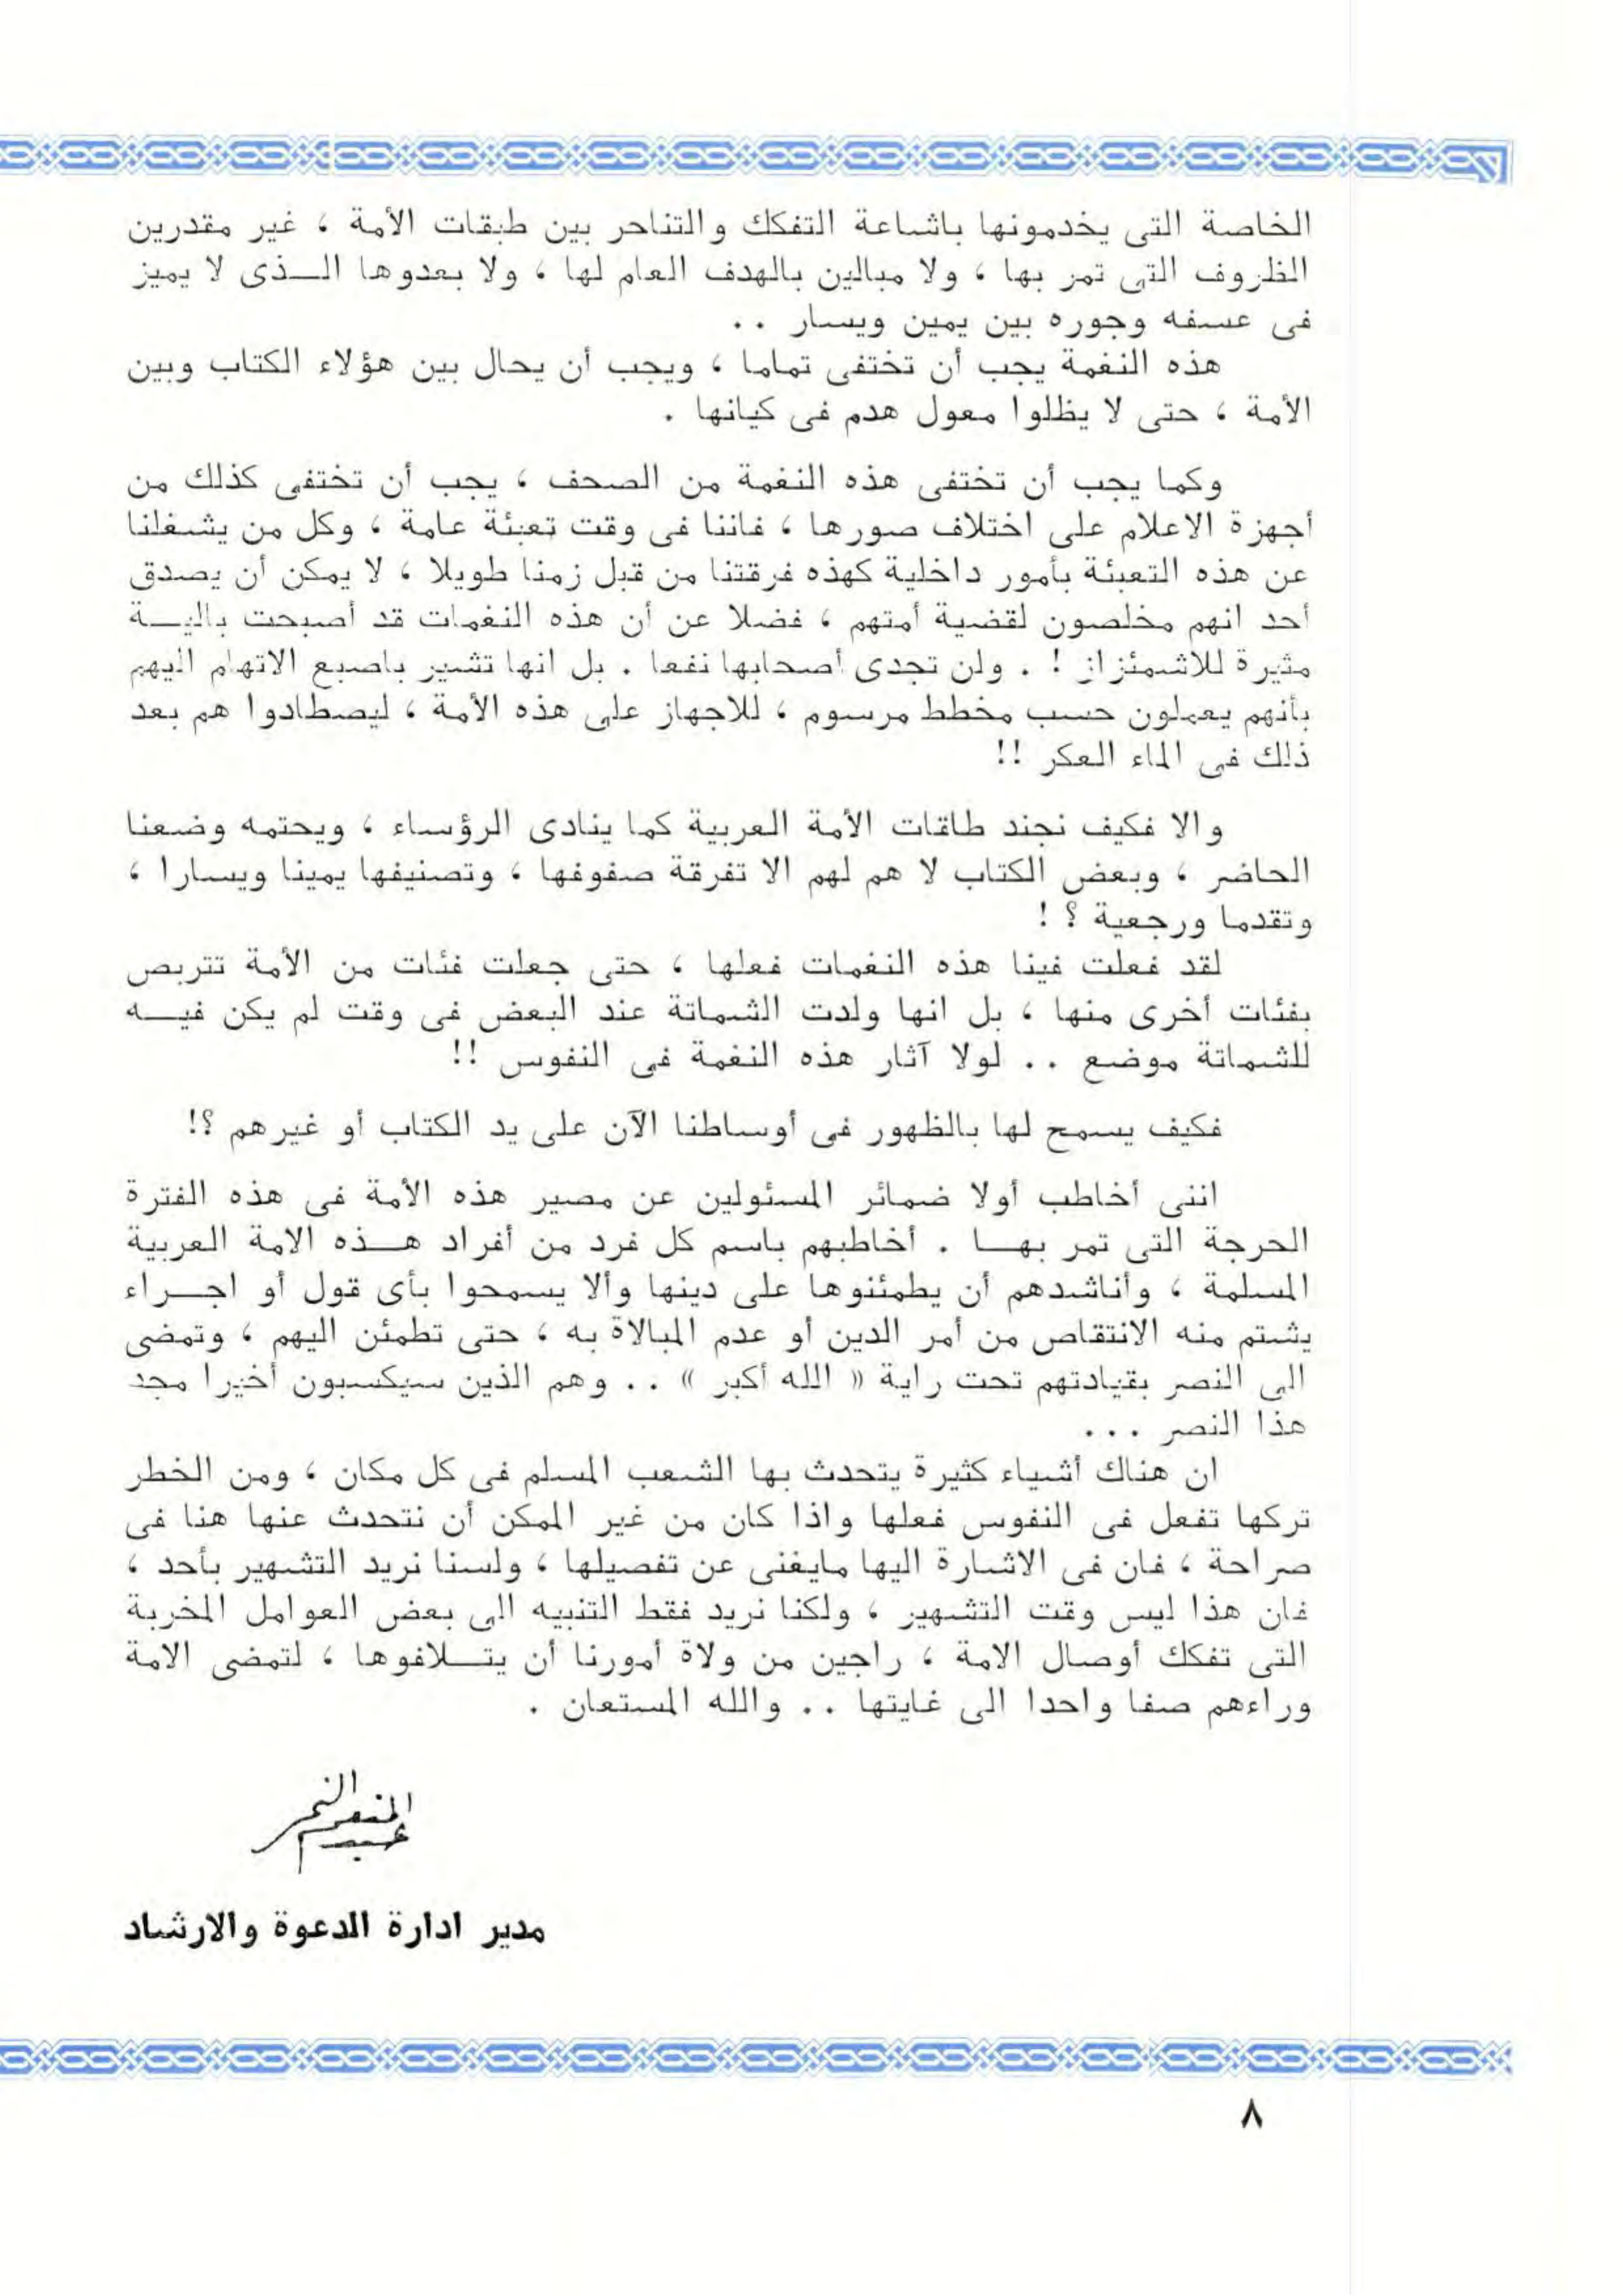 الخاصة التى يخدمونها باشاعة التفكك والتناحر بين طبقات الأمة ، غير مقدرين
الظروف التى تمر بها ، ولا مبالين بالهدف العام لها ، ولا بعدوها الــذى لا يميز
فى عسفه وجوره بين يمين ويسار ..
هذه النغمة يجب أن تختفى تماما ، ويجب أن يحال بين هؤلاء الكتاب وبين
الأمة ، حتى لا يظلوا معول هدم فى كيانها .
وكما يجب أن تختفى هذه النغمة من الصحف ، يجب أن تختفى كذلك من
أجهزة الاعلام على اختلاف صورها ، فاننا فى وقت تعبئة عامة ، وكل من يشغلنا
عن هذه التعبئة بأمور داخلية كهذه فرقتنا من قبل زمنا طويلا ، لا يمكن أن يصدق
أحد انهم مخلصون لقضية أمتهم ، فضلا عن أن هذه النغمات قد أصبحت باليــة
مثيرة للاشمئزاز ! . ولن تجدى أصحابها نفعا . بل انها تشير باصبع الاتهام اليهم
بأنهم يعملون حسب مخطط مرسوم ، للاجهاز على هذه الأمة ، ليصطادوا هم بعد
ذلك فى الماء العكر !!
والا فكيف نجند طاقات الأمة العربية كما ينادى الرؤساء ، ويحتمه وضعنا
الحاضر ، وبعض الكتاب لا هم لهم الا تفرقة صفوفها ، وتصنيفها يمينا ويسارا ،
وتقدما ورجعية ؟ !
لقد فعلت فينا هذه النغمات فعلها ، حتى جعلت فئات من الأمة تتربص
بفئات أخرى منها ، بل انها ولدت الشماتة عند البعض فى وقت لم يكن فيــه
للشماتة موضع .. لولا آثار هذه النغمة فى النفوس !!
فكيف يسمح لها بالظهور فى أوساطنا الآن على يد الكتاب أو غيرهم ؟!
اننى أخاطب أولا ضمائر المسئولين عن مصير هذه الأمة فى هذه الفترة
الحرجة التى تمر بهــا . أخاطبهم باسم كل فرد من أفراد هــذه الامة العربية
المسلمة ، وأناشدهم أن يطمئنوها على دينها وألا يسمحوا بأى قول أو اجــراء
يشتم منه الانتقاص من أمر الدين أو عدم المبالاة به ، حتى تطمئن اليهم ، وتمضى
الى النصر بقيادتهم تحت راية « الله أكبر » .. وهم الذين سيكسبون أخيرا مجد
هذا النصر ...
ان هناك أشياء كثيرة يتحدث بها الشعب المسلم فى كل مكان ، ومن الخطر
تركها تفعل فى النفوس فعلها واذا كان من غير الممكن أن نتحدث عنها هنا فى
صراحة ، فان فى الاشارة اليها مايغنى عن تفصيلها ، ولسنا نريد التشهير بأحد ،
فان هذا ليس وقت التشهير ، ولكنا نريد فقط التنبيه الى بعض العوامل المخربة
التى تفكك أوصال الامة ، راجين من ولاة أمورنا أن يتــلافوها ، لتمضى الامة
وراءهم صفا واحدا الى غايتها .. والله المستعان .
عبد المنعم النمر
مدير ادارة الدعوة والارشاد
٨